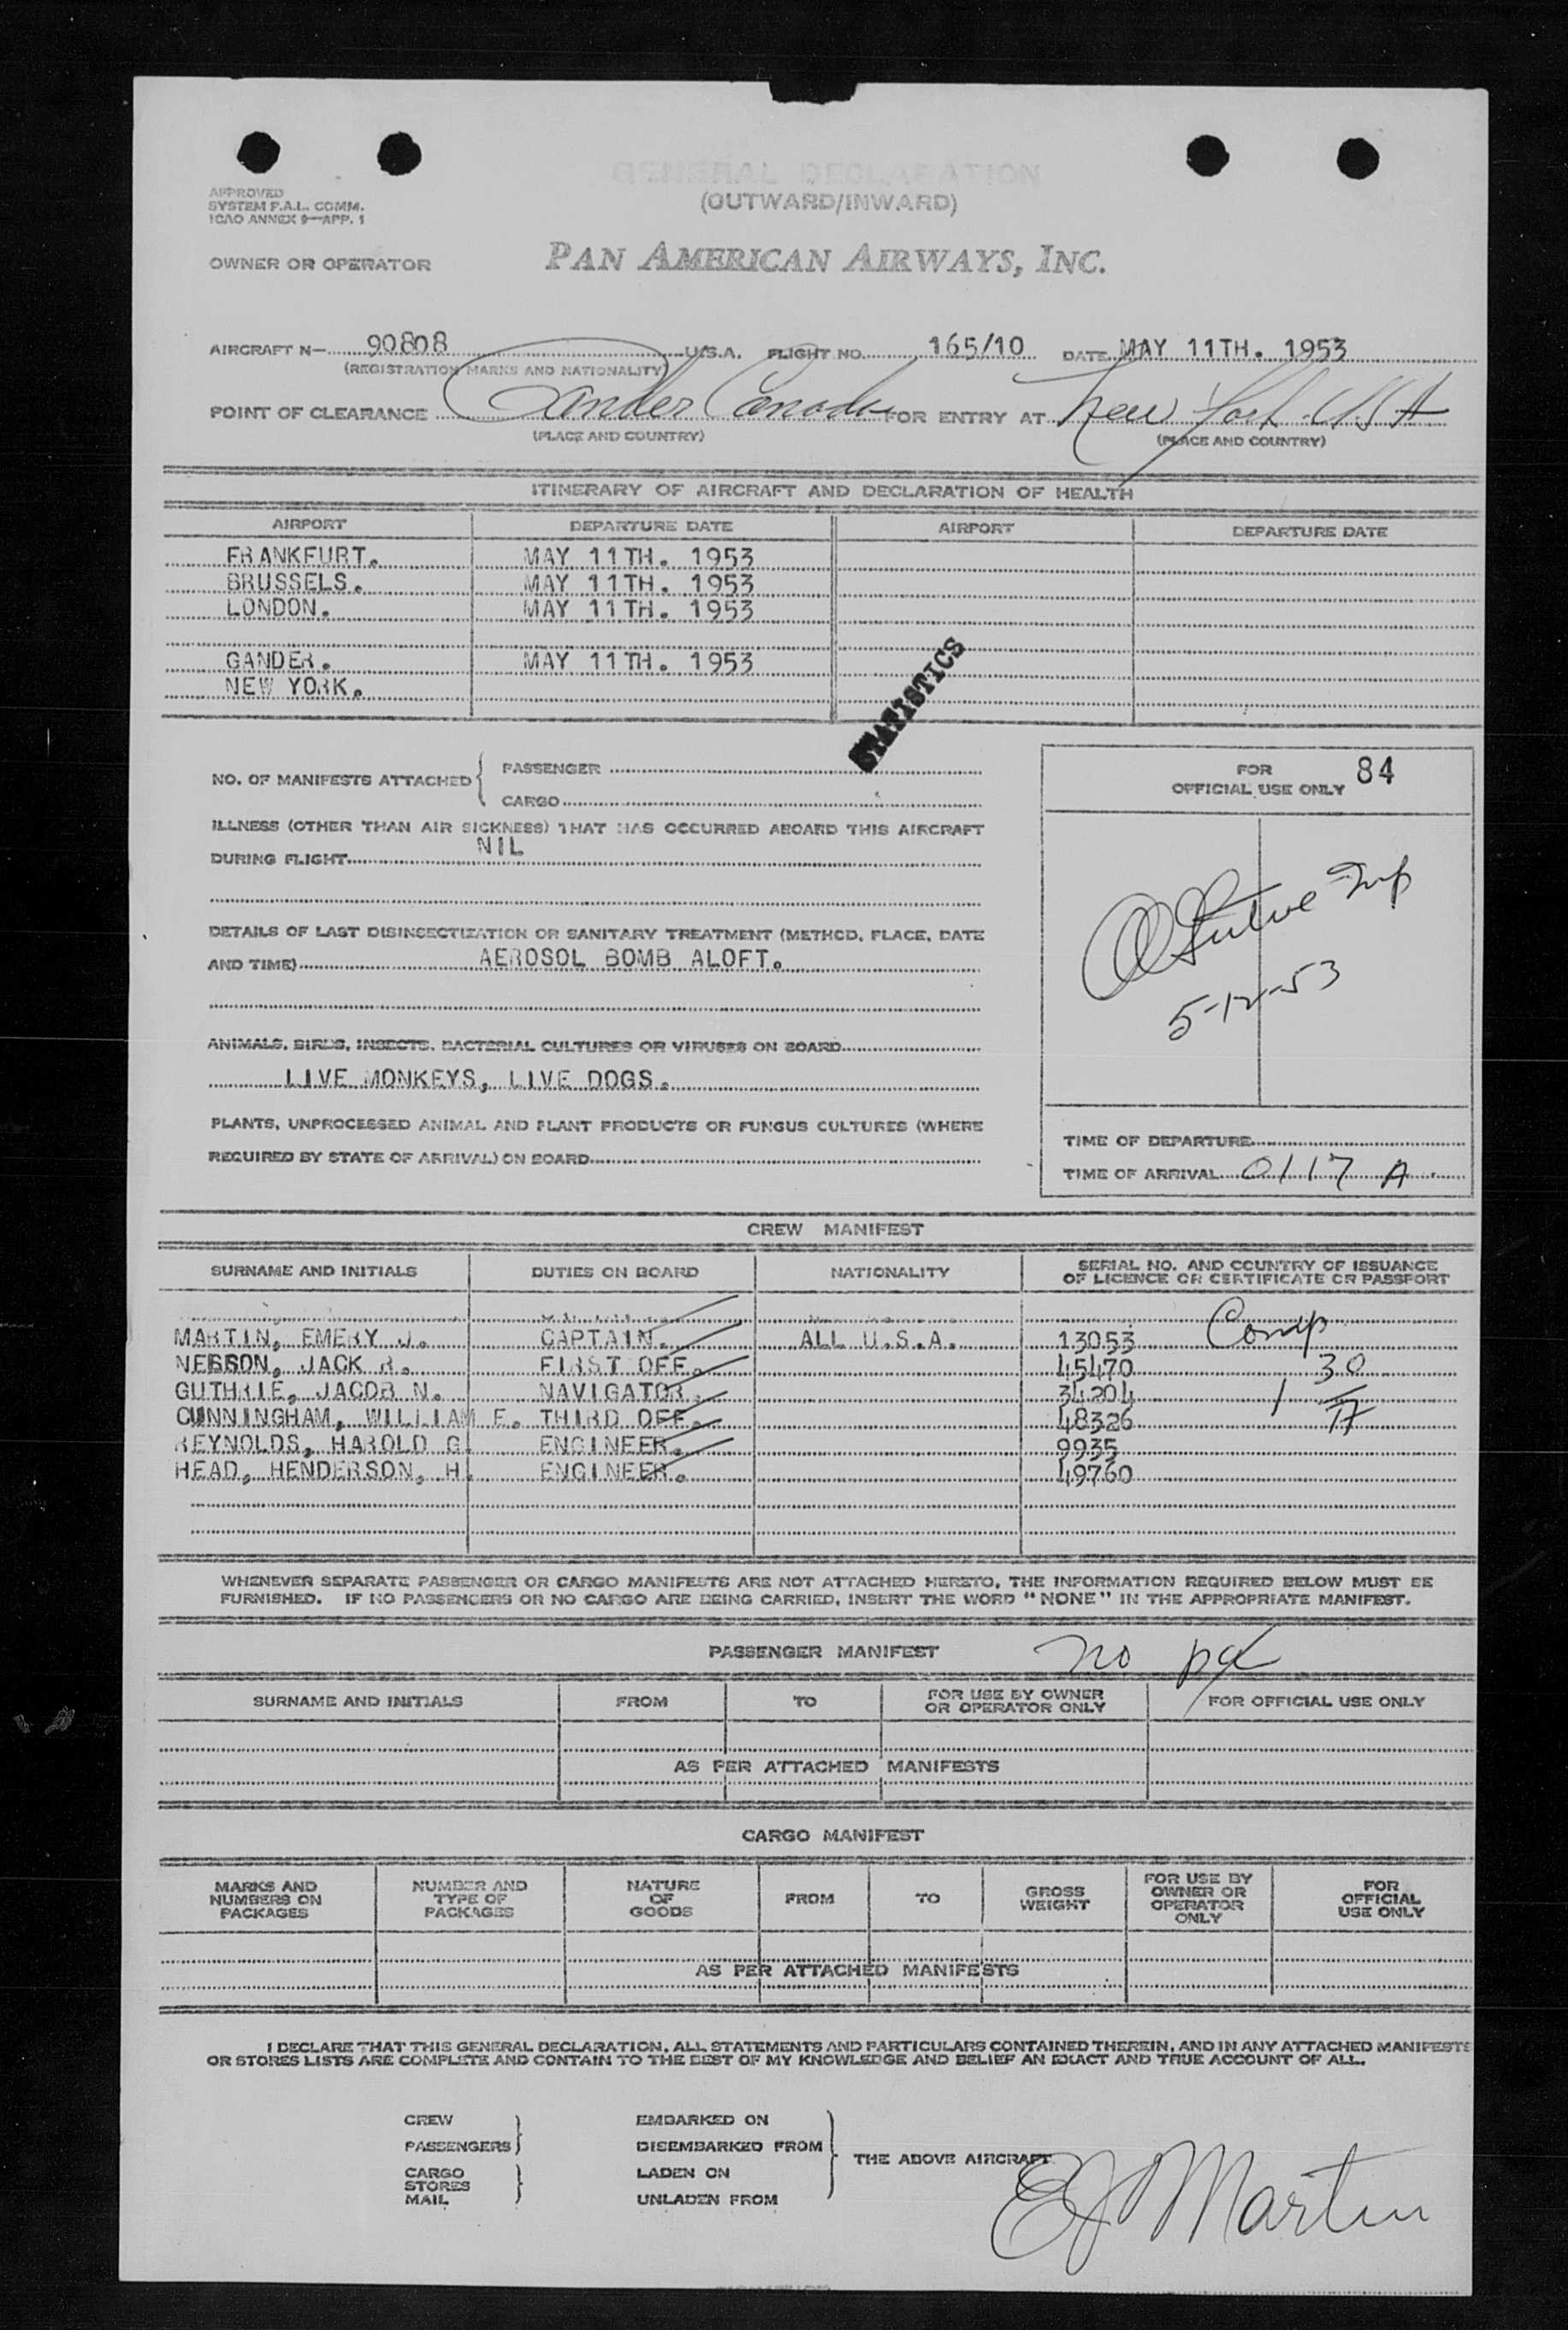 GENERAL DECLARATION
(OUTWARD/INWARD)
APPROVED
SYSTEM F.A.L. COMM.
ICAO ANNEX 9—APP. 1
OWNER OR OPERATOR PAN AMERICAN AIRWAYS, INC.
AIRCRAFT N— 90808 U.S.A. FLIGHT NO. 165/10 DATE MAY 11TH. 1953
(REGISTRATION MARKS AND NATIONALITY)
POINT OF CLEARANCE Gander Canada FOR ENTRY AT New York USA
(PLACE AND COUNTRY) (PLACE AND COUNTRY)
ITINERARY OF AIRCRAFT AND DECLARATION OF HEALTH
AIRPORT DEPARTURE DATE AIRPORT DEPARTURE DATE
FRANKFURT. MAY 11TH. 1953
BRUSSELS. MAY 11TH. 1953
LONDON. MAY 11TH. 1953
GANDER. MAY 11TH. 1953
NEW YORK.
STATISTICS
NO. OF MANIFESTS ATTACHED { PASSENGER
CARGO
FOR
OFFICIAL USE ONLY 84
ILLNESS (OTHER THAN AIR SICKNESS) THAT HAS OCCURRED ABOARD THIS AIRCRAFT
DURING FLIGHT NIL
DETAILS OF LAST DISINSECTIZATION OR SANITARY TREATMENT (METHOD, PLACE, DATE
AND TIME) AEROSOL BOMB ALOFT.
5-12-53
ANIMALS, BIRDS, INSECTS, BACTERIAL CULTURES OR VIRUSES ON BOARD
LIVE MONKEYS, LIVE DOGS.
PLANTS, UNPROCESSED ANIMAL AND PLANT PRODUCTS OR FUNGUS CULTURES (WHERE
REQUIRED BY STATE OF ARRIVAL) ON BOARD
TIME OF DEPARTURE
TIME OF ARRIVAL 0117 A
CREW MANIFEST
SURNAME AND INITIALS DUTIES ON BOARD NATIONALITY SERIAL NO. AND COUNTRY OF ISSUANCE
OF LICENCE OR CERTIFICATE OR PASSPORT
MARTIN, EMERY J. CAPTAIN. ALL U.S.A. 13053 Comp
NESSON, JACK R. FIRST OFF. 45470 30
GUTHRIE, JACOB N. NAVIGATOR. 34204 1
CUNNINGHAM, WILLIAM E. THIRD OFF. 48326
REYNOLDS, HAROLD G. ENGINEER. 9935
HEAD, HENDERSON, H. ENGINEER. 49760
WHENEVER SEPARATE PASSENGER OR CARGO MANIFESTS ARE NOT ATTACHED HERETO, THE INFORMATION REQUIRED BELOW MUST BE
FURNISHED. IF NO PASSENGERS OR NO CARGO ARE BEING CARRIED, INSERT THE WORD "NONE" IN THE APPROPRIATE MANIFEST.
PASSENGER MANIFEST no px
SURNAME AND INITIALS FROM TO FOR USE BY OWNER
OR OPERATOR ONLY FOR OFFICIAL USE ONLY
AS PER ATTACHED MANIFESTS
CARGO MANIFEST
MARKS AND
NUMBERS ON
PACKAGES NUMBER AND
TYPE OF
PACKAGES NATURE
OF
GOODS FROM TO GROSS
WEIGHT FOR USE BY
OWNER OR
OPERATOR
ONLY FOR
OFFICIAL
USE ONLY
AS PER ATTACHED MANIFESTS
I DECLARE THAT THIS GENERAL DECLARATION, ALL STATEMENTS AND PARTICULARS CONTAINED THEREIN, AND IN ANY ATTACHED MANIFESTS
OR STORES LISTS ARE COMPLETE AND CONTAIN TO THE BEST OF MY KNOWLEDGE AND BELIEF AN EXACT AND TRUE ACCOUNT OF ALL.
CREW EMBARKED ON
PASSENGERS DISEMBARKED FROM THE ABOVE AIRCRAFT
CARGO LADEN ON
STORES
MAIL UNLADEN FROM
EJ Martin